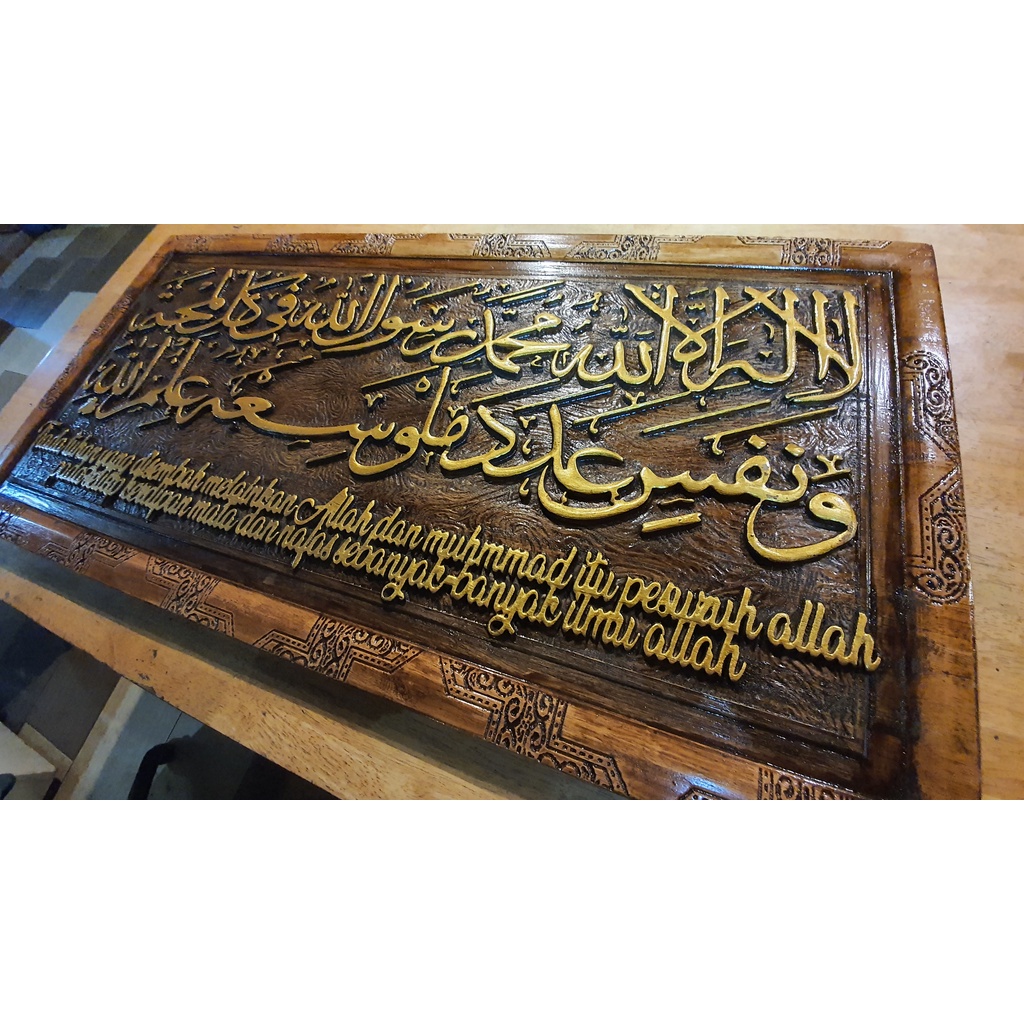 لا إله إلا الله محمد رسول الله في كل لمحة
ونفس عدد ما وسعه علم الله
Tiada tuhan yang disembah melainkan Allah dan muhmmad itu pesuruh allah
pada tiap kerdipan mata dan nafas sebanyak-banyak ilmu allah